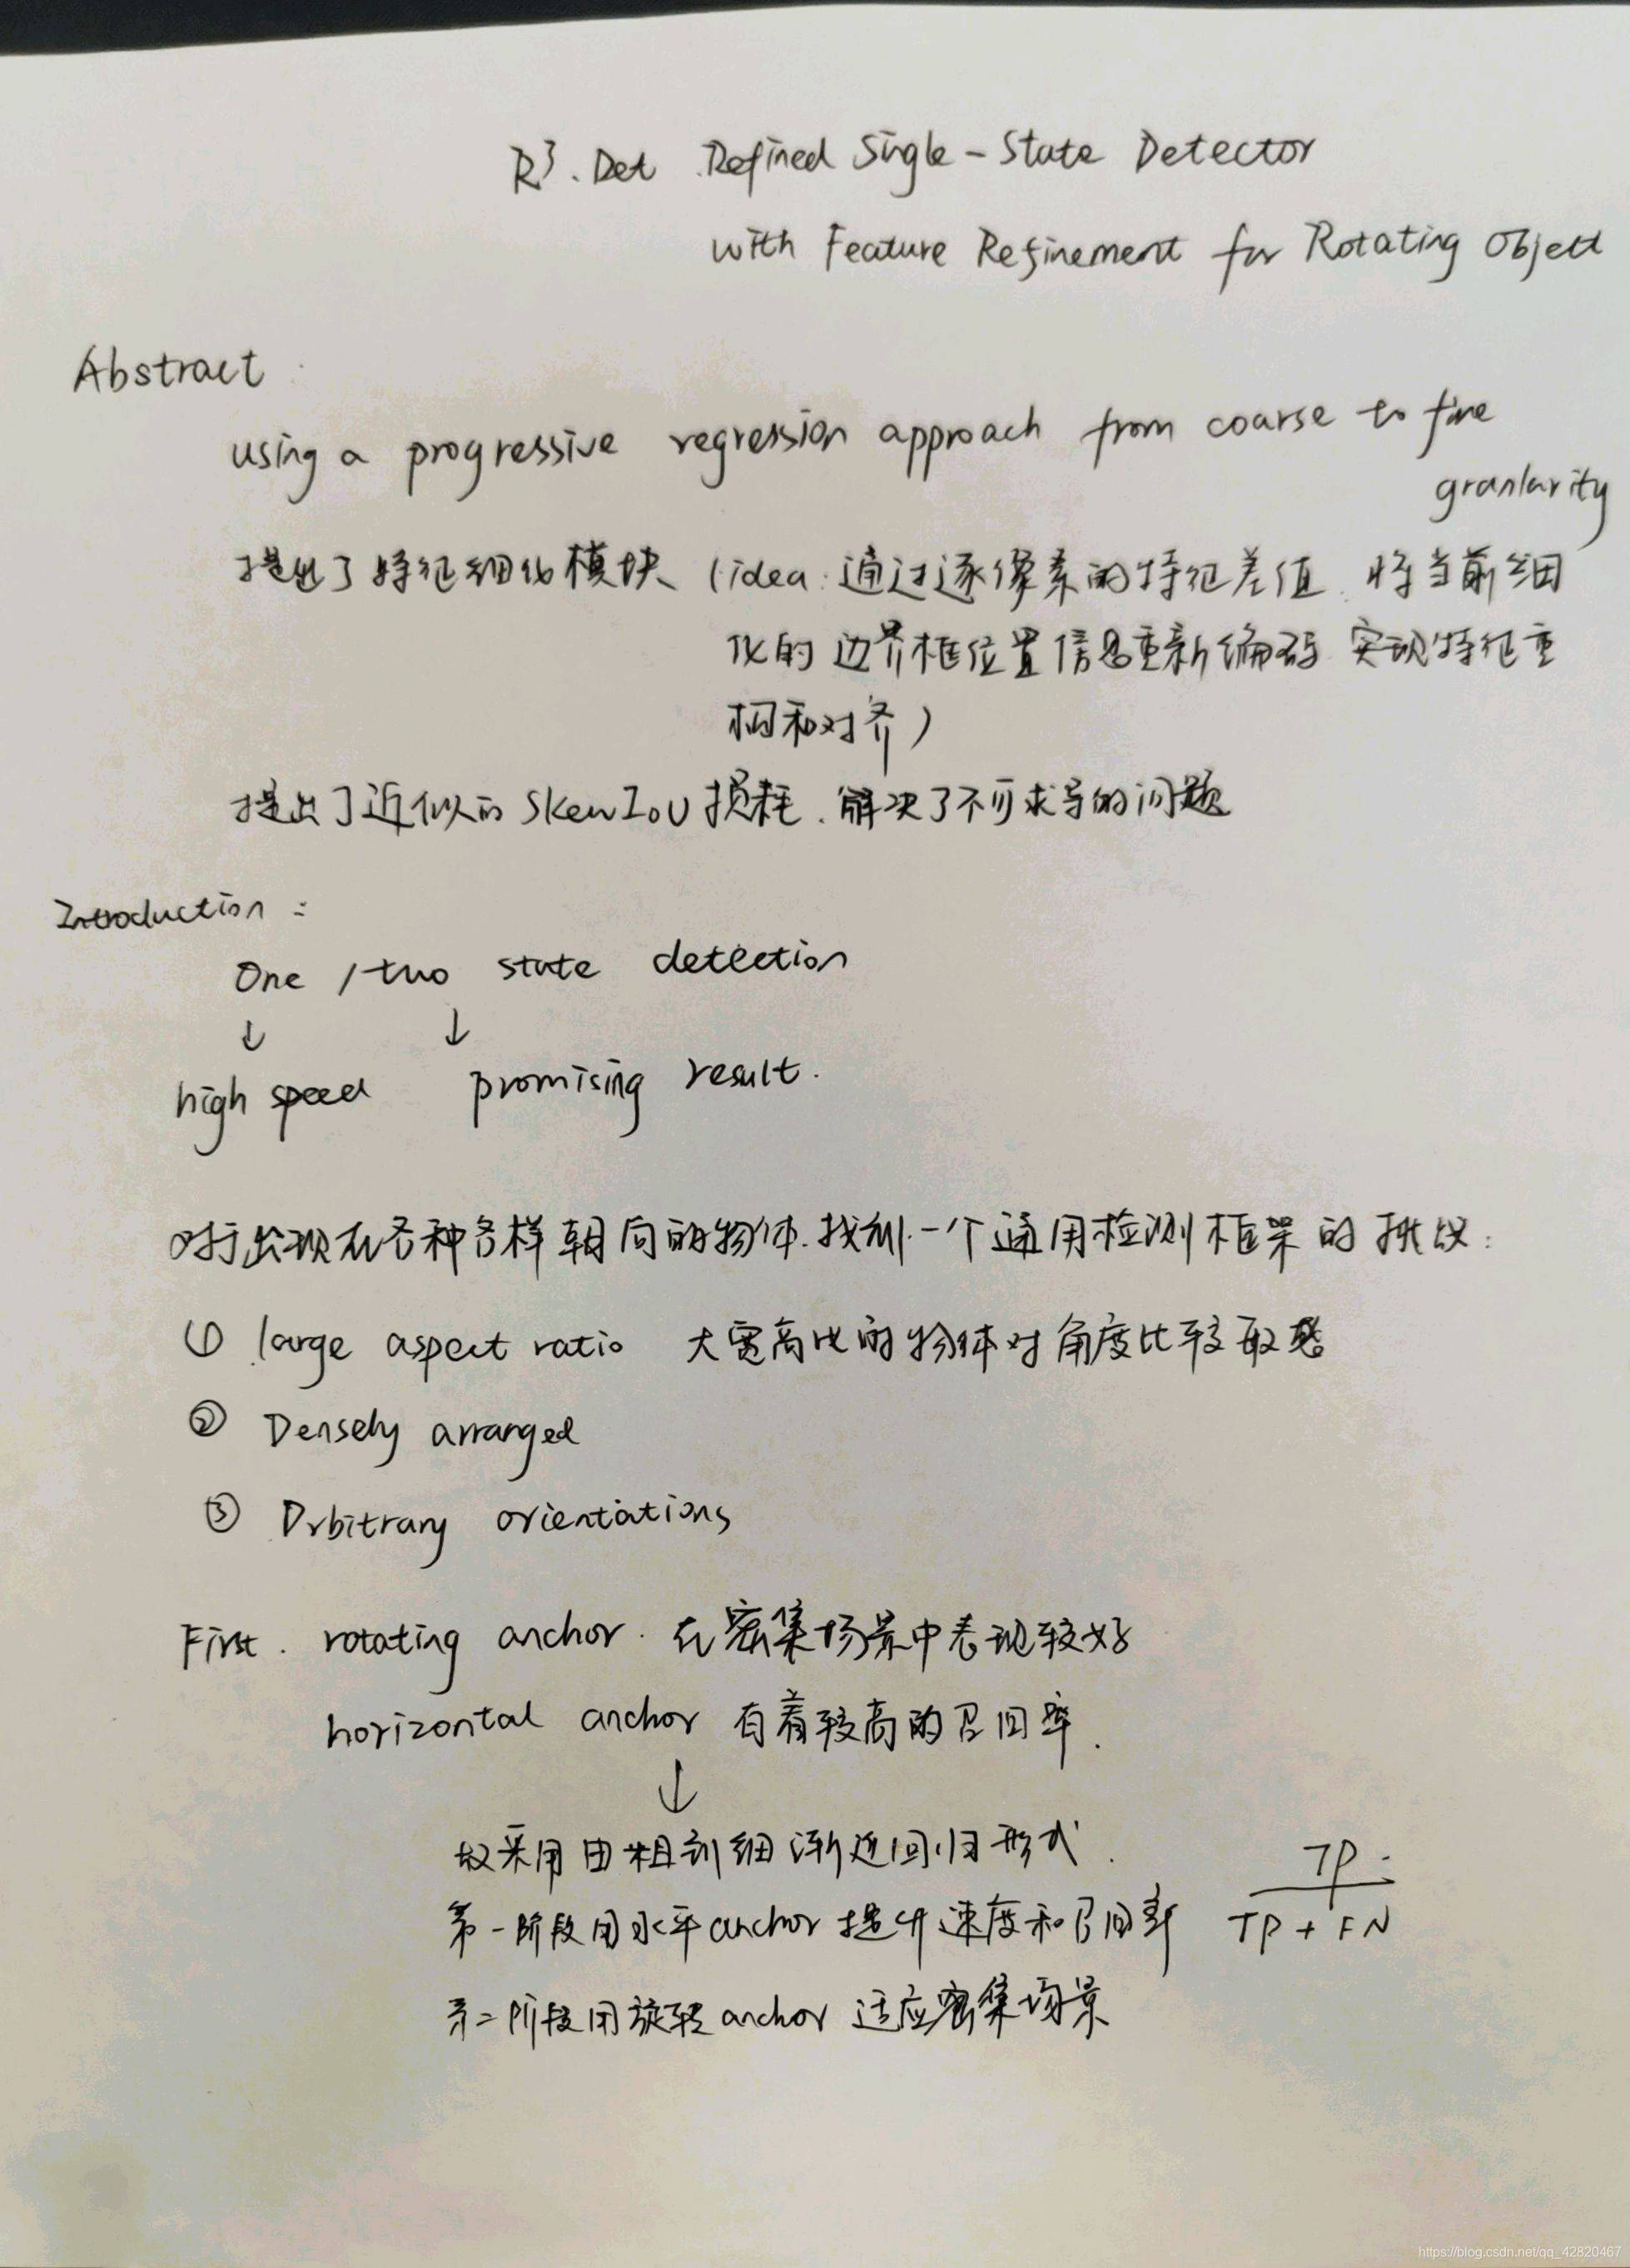 R³.Det Refined Single-State Detector
with Feature Refinement for Rotating Object
Abstract
using a progressive regression approach from coarse to fine
granlarity
提出了特征细化模块 (idea: 通过逐像素的特征差值 将当前细
化的边界框位置信息重新编码 实现特征重
构和对齐)
提出了近似的SkewIoU损耗.解决了不可求导的问题
Introduction:
One / two state detection
↓ ↓
high speed promising result.
对于出现在各种各样朝向的物体.找到一个通用检测框架的挑战:
① large aspect ratio 大宽高比的物体对角度比较敏感
② Densely arranged
③ Drbitrary orientations
First. rotating anchor. 在密集场景中表现较好
horizontal anchor 有着较高的召回率.
↓
故采用由粗到细渐近回归形式.
第一阶段用水平anchor提升速度和召回率
TP
TP + FN
第二阶段用旋转anchor 适应密集场景
https://blog.csdn.net/qq_42820467